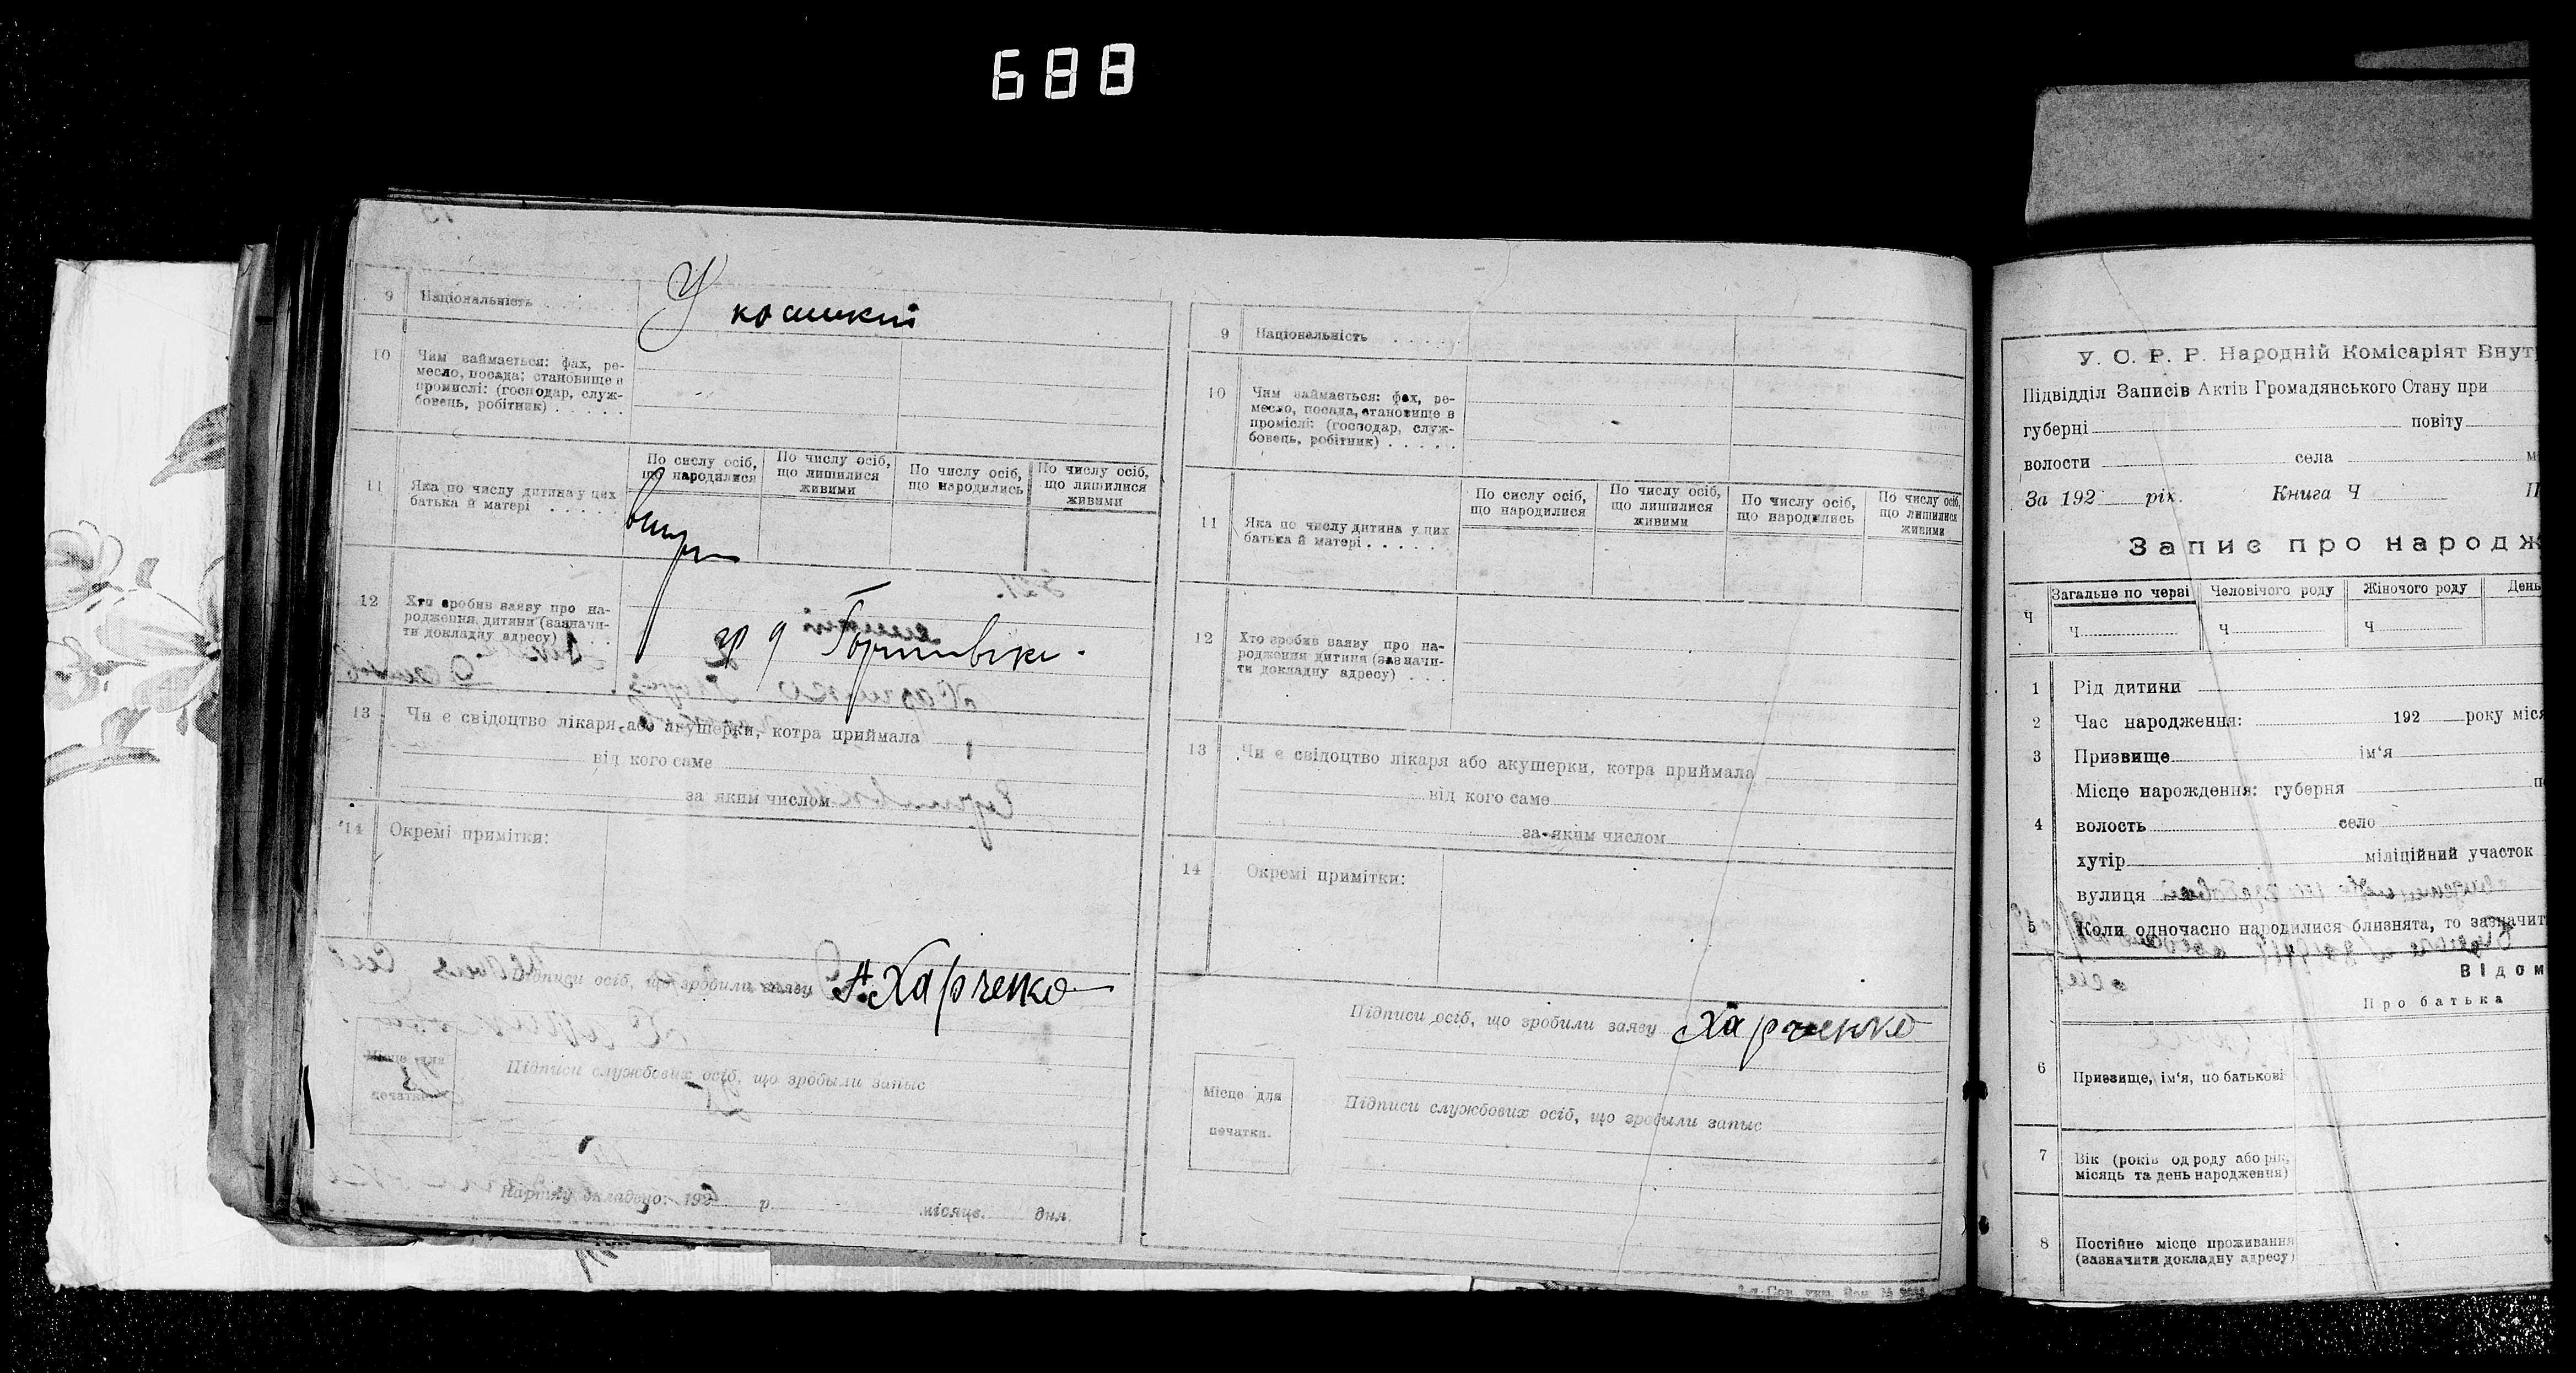 688
9 Національність . . . . .
У
10 Чим займається: фах, ре-
месло, посада; становище в
промислі: (господар, служ-
бовець, робітник) . . . . . .
11 Яка по числу дитина у цих
батька й матері . . . . .
По сислу осіб,
що народилися
По числу осіб,
що лишилися
живими
По числу осіб,
що народились
По числу осіб,
що лишилися
живими
12 Хто зробив заяву про на-
родження дитини (зазначи-
ти докладну адресу) . . .
13 Чи є свідоцтво лікаря або акушерки, котра приймала
від кого саме
за яким числом
14 Окремі примітки:
Підписи осіб, що зробили заяву А. Харченко
Місце для
печатки
Підписи службових осіб, що зробыли запыс
Картку складено: 192 р. місяця. дня.
9 Національність . . . . .
10 Чим займається: фах, ре-
месло, посада, становище в
проміслі: (господар, служ-
бовець, робітник) . . . . .
11 Яка по числу дитина у цих
батька й матері . . . . .
По сислу осіб,
що народилися
По числу осіб,
що лишилися
живими
По числу осіб,
що народились
По числу осіб,
що лишилися
живими
12 Хто зробив заяву про на-
родження дитини (зазначи-
ти докладну адресу) . . .
13 Чи є свідоцтво лікаря або акушерки, котра приймала
від кого саме
за яким числом
14 Окремі примітки:
Підписи осіб, що зробили заяву Харченко
Місце для
печатки.
Підписи службових осіб, що зробыли запыс
У. С. Р. Р. Народній Комісаріят Внут
Підвідділ Записів Актів Громадянського Стану при
губерні повіту
волости села
За 192 рік. Книга Ч
Запис про народж
Ч Загальне по черзі Человічого роду Жіночого роду День
Ч Ч Ч
1 Рід дитини
2 Час народження: 192 року міся
3 Призвище ім'я
Місце нарождення: губерня
4 волость село
хутір міліційний участок
вулиця
5 Коли одночасно народилися близнята, то зазначит
Відом
Про батька
6 Призвище, ім'я, по батькові
7 Вік (років од роду або рік,
місяць та день народження)
8 Постійне місце проживання
(зазначити докладну адресу)